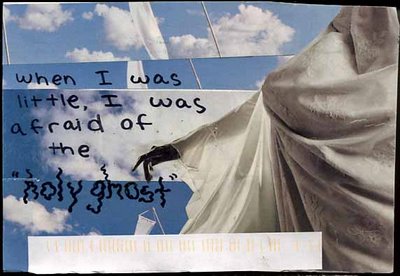 when I was
little, I was
afraid of
the
"holy ghost"